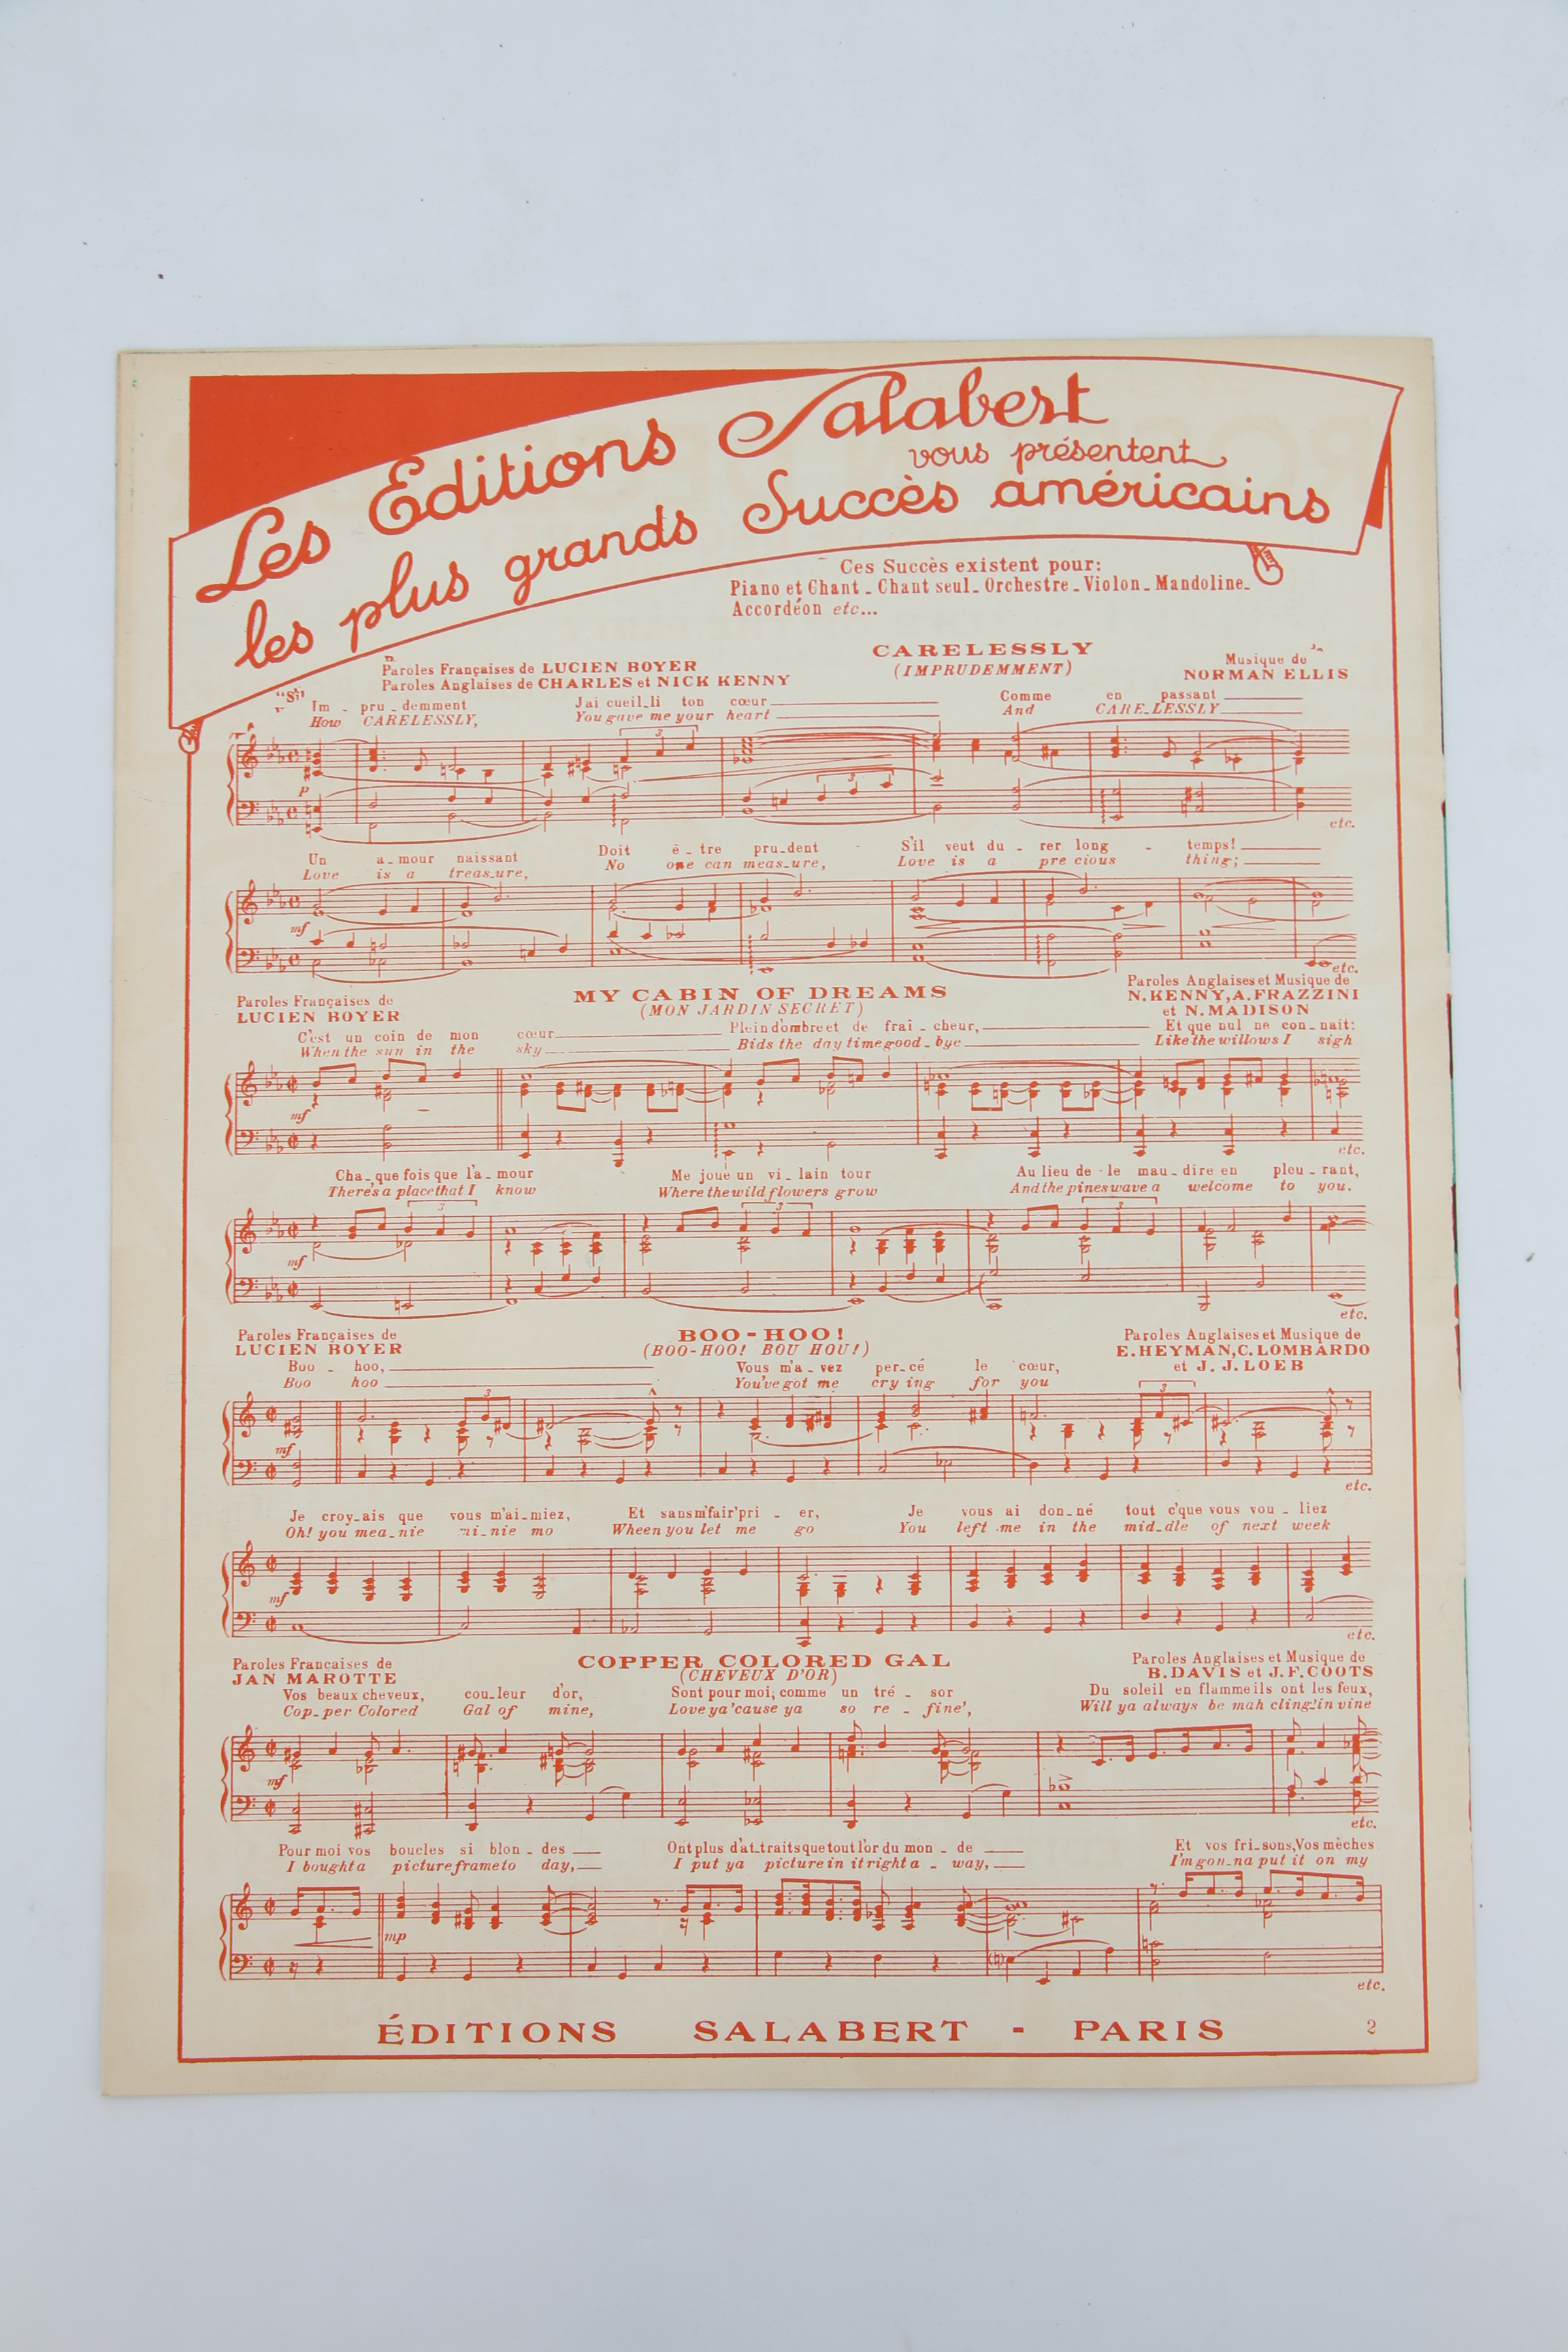 Les Editions Salabert
vous présentent
les plus grands Succès américains
Ces Succès existent pour:
Piano et Chant _ Chant seul _ Orchestre _ Violon _ Mandoline _
Accordéon etc...
CARELESSLY
(IMPRUDEMMENT)
Paroles Françaises de LUCIEN BOYER
Paroles Anglaises de CHARLES et NICK KENNY
Musique de
NORMAN ELLIS
Im - pru _ demment J'ai cueil _ li ton cœur Comme en passant
How CARELESSLY, You gave me your heart And CARE _ LESSLY
p
3
3
etc.
Un a _ mour naissant Doit ê _ tre pru _ dent - S'il veut du _ rer long - temps!
Love is a treas _ ure, No one can meas _ ure, Love is a pre cious thing;
mf
etc.
Paroles Françaises de
LUCIEN BOYER
MY CABIN OF DREAMS
(MON JARDIN SECRET)
Paroles Anglaises et Musique de
N. KENNY, A. FRAZZINI
et N. MADISON
C'est un coin de mon cœur Plein d'ombre et de fraî _ cheur, Et que nul ne con _ nait:
When the sun in the sky Bids the day time good _ bye Like the willows I sigh
mf
etc.
Cha _ que fois que l'a _ mour Me joue un vi _ lain tour Au lieu de - le mau _ dire en pleu _ rant,
There's a place that I know Where the wild flowers grow And the pines wave a welcome to you.
3
3
3
mf
etc.
Paroles Françaises de
LUCIEN BOYER
BOO-HOO!
(BOO-HOO! BOU HOU!)
Paroles Anglaises et Musique de
E. HEYMAN, C. LOMBARDO
et J. J. LOEB
Boo - hoo, Vous m'a _ vez per _ cé le cœur,
Boo hoo You've got me cry ing for you
3
3
mf
etc.
Je croy _ ais que vous m'ai _ miez, Et sans m'fair' pri - er, Je vous ai don _ né tout c'que vous vou _ liez
Oh! you mea _ nie mi _ nie mo Wheen you let me go You left me in the mid _ dle of next week
mf
etc.
Paroles Francaises de
JAN MAROTTE
COPPER COLORED GAL
(CHEVEUX D'OR)
Paroles Anglaises et Musique de
B. DAVIS et J. F. COOTS
Vos beaux cheveux, cou _ leur d'or, Sont pour moi, comme un tré _ sor Du soleil en flamme ils ont les feux,
Cop _ per Colored Gal of mine, Love ya 'cause ya so re _ fine', Will ya always be mah cling' in vine
mf
etc.
Pour moi vos boucles si blon _ des Ont plus d'at _ traits que tout l'or du mon _ de Et vos fri _ sons, Vos mèches
I bought a picture frame to day, I put ya picture in it right a _ way, I'm gon _ na put it on my
mp
etc.
ÉDITIONS SALABERT - PARIS
2